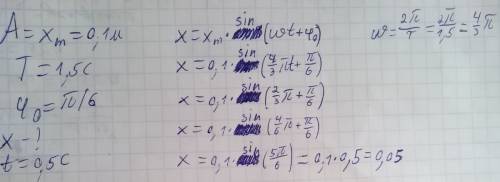 A = x_m = 0,1м
T = 1,5с
φ₀ = π/6
x - ?
t = 0,5с
x = x_m · sin (ωt + φ₀)
x = 0,1 · sin (4/3 πt + π/6)
x = 0,1 · sin (2/3 π + π/6)
x = 0,1 · sin (4/6 π + π/6)
x = 0,1 · sin (5π/6) = 0,1 · 0,5 = 0,05
ω = 2π/T = 2π/1,5 = 4/3 π